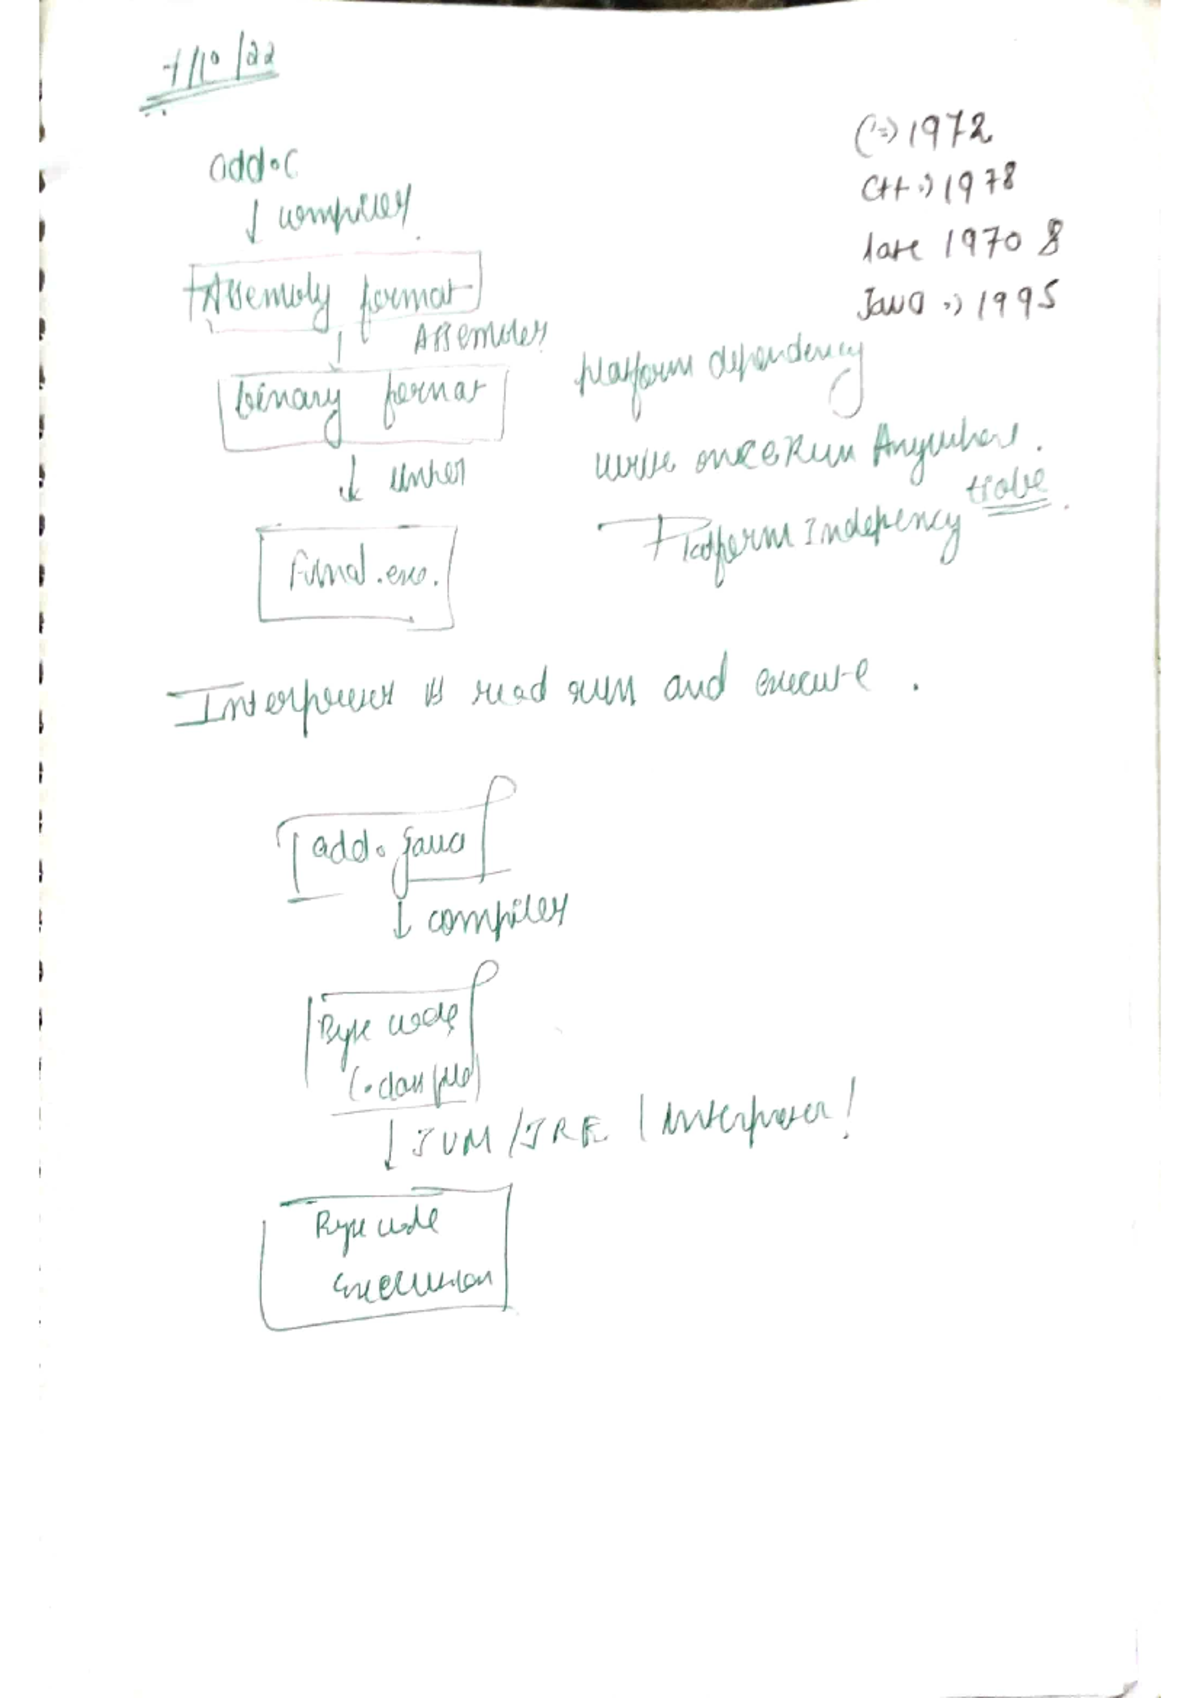 add.c
↓ compiler
C => 1972
C++ => 1978
late 1970 8
Java => 1995
Assembly format
↓ Assembler
binary format
↓ linker
Final.exe.
platform dependency
write once Run Anywhere.
Platform Indepency
Interpreter is read run and execute.
add.java
↓ compiler
Byte code
(.class file)
↓ JVM/JRE / interpreter!
Byte code
execution